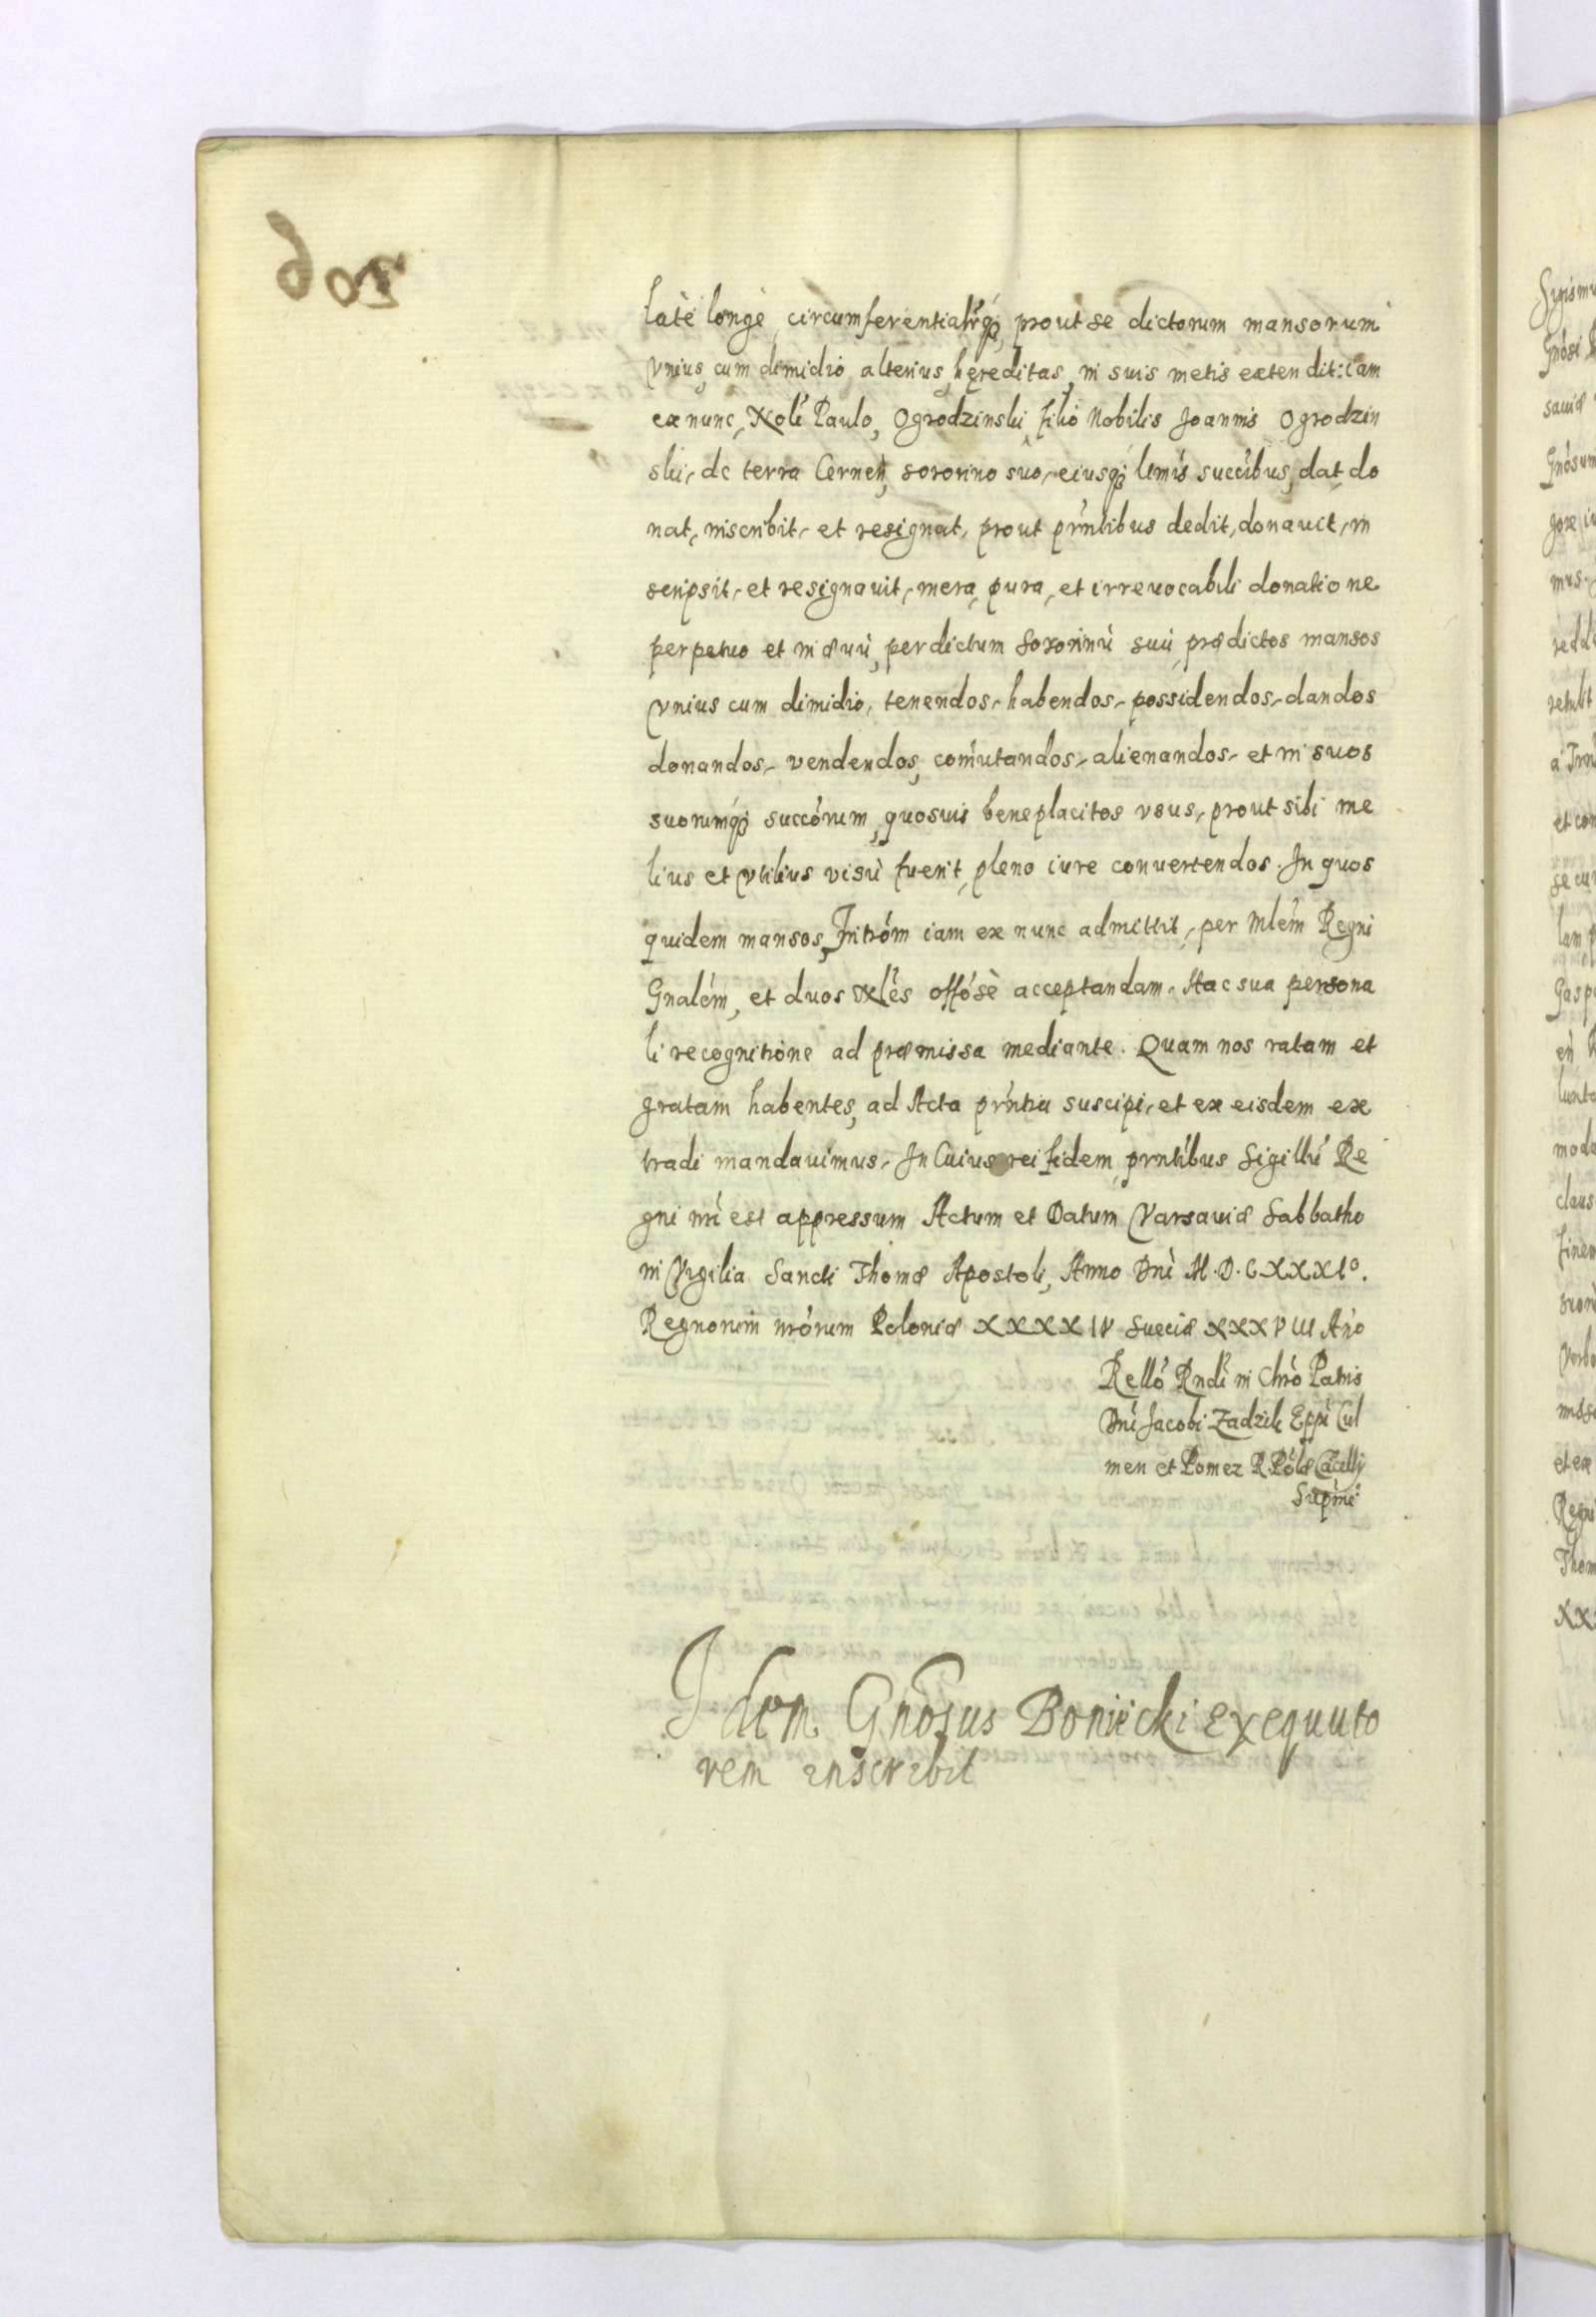 latè longè circumferentialrq, prout se dictorum mansorum
vnius, cum dimidio alterius, hęreditas, in suis metis extendit: iam
ex nunc, Nołi Paulo, Ogrodzinski filio Nobilis Joannis Ogrodzin
ski, de terra Cernen, sororino suo, eiusq ltmis succibus, dat do
nat, inscribit, et resignat, prout pntibus dedit, donauit, in
scripsit, et resignauit, mera, pura, et irreuocabili donatione
perpetuo et in æuu, per dictum Sororinu suu, prædictos mansos
vnius cum dimidio, tenendos, habendos, possidendos, dandos
donandos, vendendos, comutandos, alienandos, et in suos
suorumq succorum, quosuis beneplacitos vsus, prout sibi me
lius et vtilius visu fuerit, pleno iure conuertendos. In quos
quidem mansos, Introm iam ex nunc admittit, per Mlem Regni
Gnalem, et duos Nłes offose acceptandam. Hac sua persona
li recognitione ad præmissa mediante. Quam nos ratam et
gratam habentes, ad Acta pntia suscipi, et ex eisdem ex
tradi mandauimus. In Cuius rei fidem pntibus Sigillu Re
gni nri est appressum Actum et Datum Varsauiæ Sabbatho
in Vigilia Sancti Thomæ Apostoli, Anno Dni M.D.CXXXIo.
Regnorum nrorum Poloniæ XXXXIV Sueciæ XXXVIII Ano
Rello Rndi in Chro Patris
Dni Jacobi Zadzik Eppi Cul
men et Pomez R. Polæ Cacellij
Supmi
Idem Gnosus Boniecki exequuto
rem inscribit